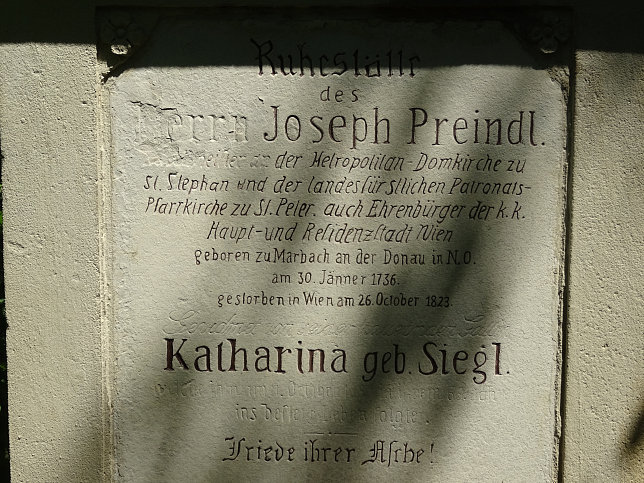 Ruhestätte
des
Herrn Joseph Preindl.
der Metropolitan-Domkirche zu
St. Stephan und der landesfürstlichen Patronats-
Pfarrkirche zu St. Peter. auch Ehrenbürger der k. k.
Haupt-und Residenzstadt Wien
geboren zu Marbach an der Donau in N.O.
am 30. Jänner 1736.
gestorben in Wien am 26. October 1823.
Katharina geb. Siegl.
ins beßere Leben folgte.
Friede ihrer Asche!